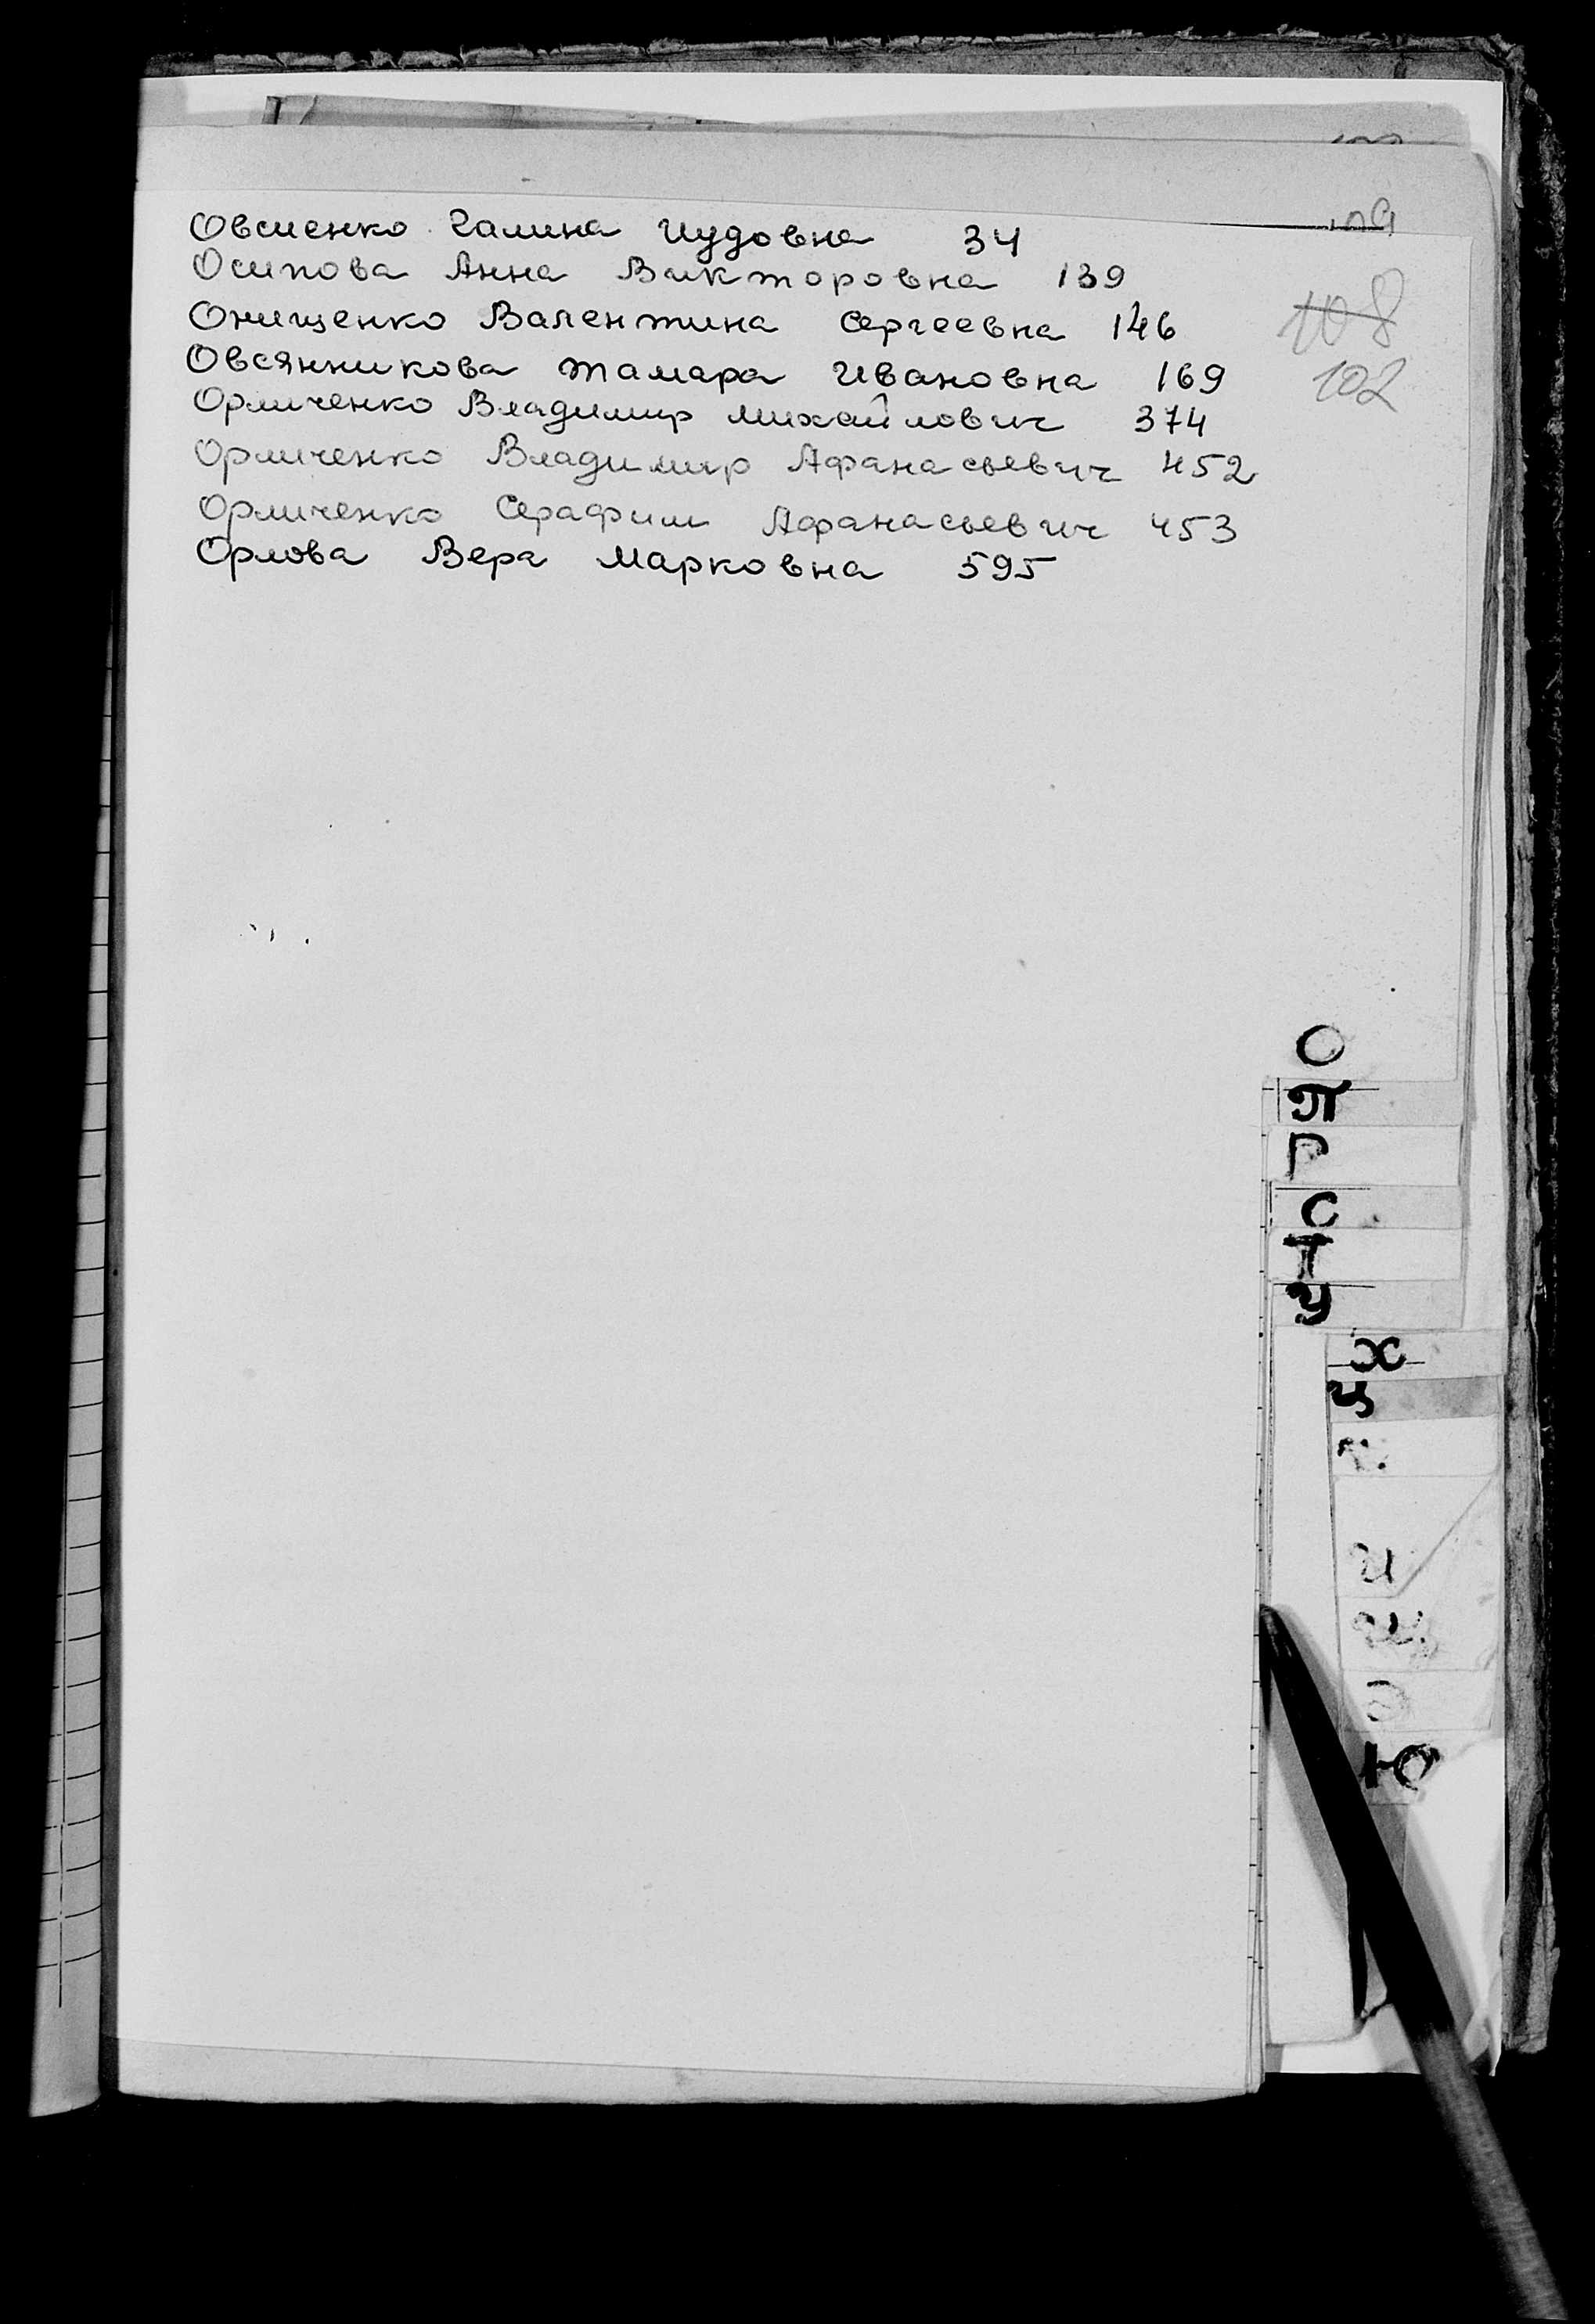 Овсиенко Галина Иудовна 34
Осипова Анна Викторовна 139
Онищенко Валентина Сергеевна 146
Овсянникова Тамара Ивановна 169
Орличенко Владимир Михайлович 374
Орличенко Владимир Афанасьевич 452
Орличенко Серафим Афанасьевич 453
Орлова Вера Марковна 595
109
108
102
О
П
Р
С
Т
У
Х
Ц
Ю